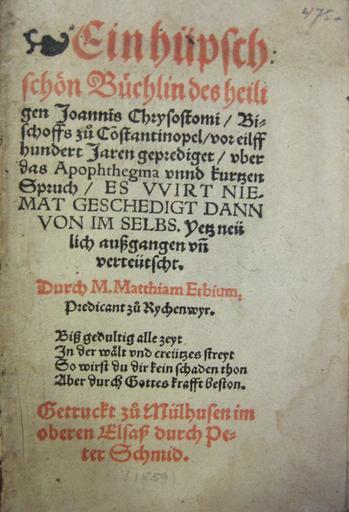 475.
Ein hüpsch
schön Büchlin des heili
gen Joannis Chrysostomi / Bi-
schoffs zů Cõstantinopel / vor eilff
hundert Jaren geprediget / vber
das Apophthegma vnnd kurtzen
Spruch / ES VVIRT NIE-
MAT GESCHEDIGT DANN
VON IM SELBS. Yetz neü
lich außgangen vñ
verteütscht.
Durch M. Matthiam Erbium,
Predicant zů Rychenwyr.
Biß gedultig alle zeyt
In der wält vnd creützes streyt
So wirst du dir kein schaden thon
Aber durch Gottes krafft beston.
Getruckt zů Mülhusen im
oberen Elsaß durch Pe-
ter Schmid.
(1559)